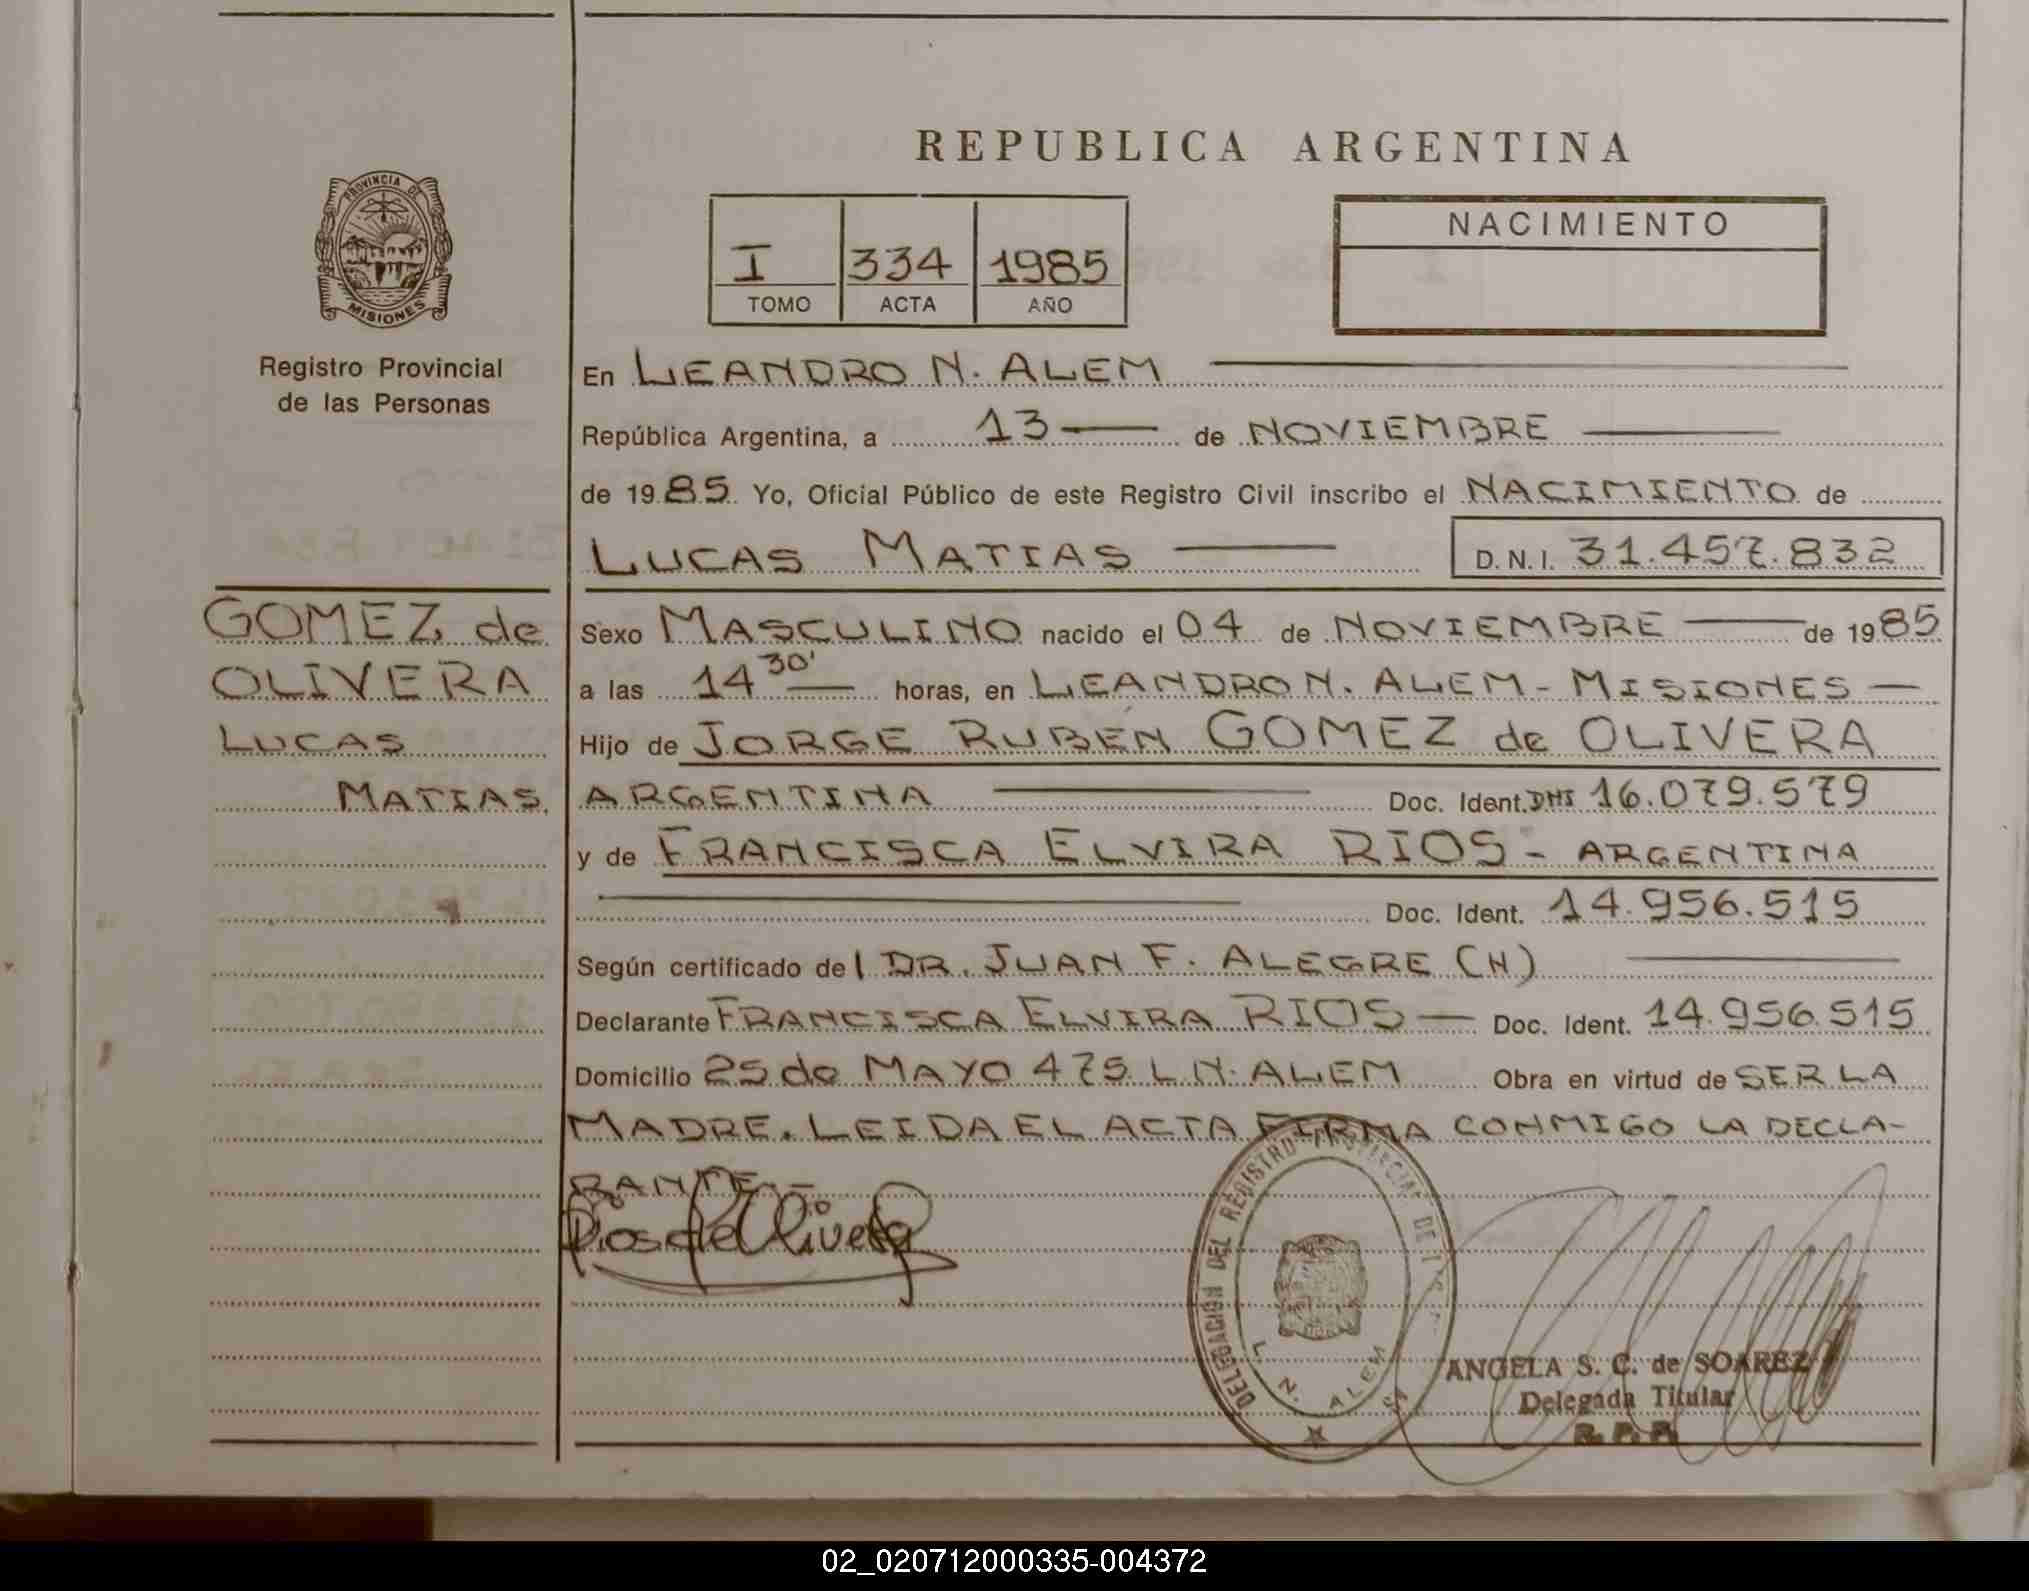 REPUBLICA ARGENTINA
PROVINCIA DE
MISIONES
Registro Provincial
de las Personas
I 334 1985
TOMO ACTA AÑO
NACIMIENTO
En LEANDRO N. ALEM
República Argentina, a 13 de NOVIEMBRE
de 1985 Yo, Oficial Público de este Registro Civil inscribo el NACIMIENTO de
LUCAS MATIAS D.N.I. 31.457.832
GOMEZ de
OLIVERA
LUCAS
MATIAS.
Sexo MASCULINO nacido el 04 de NOVIEMBRE de 1985
a las 14 30' horas, en LEANDRO N. ALEM - MISIONES
Hijo de JORGE RUBEN GOMEZ de OLIVERA
ARGENTINA Doc. Ident. DNI 16.079.579
y de FRANCISCA ELVIRA RIOS - ARGENTINA
Doc. Ident. 14.956.515
Según certificado del DR. JUAN F. ALEGRE (H)
Declarante FRANCISCA ELVIRA RIOS Doc. Ident. 14.956.515
Domicilio 25 de MAYO 475 L.N. ALEM Obra en virtud de SER LA
MADRE. LEIDA EL ACTA FIRMA CONMIGO LA DECLA-
RANTE.-
Rios de Olivera
DELEGACIÓN DEL REGISTRO PROVINCIAL DE
L. N. ALEM
ANGELA S. C. de SOAREZ
Delegada Titular
R. P. P.
02_020712000335-004372